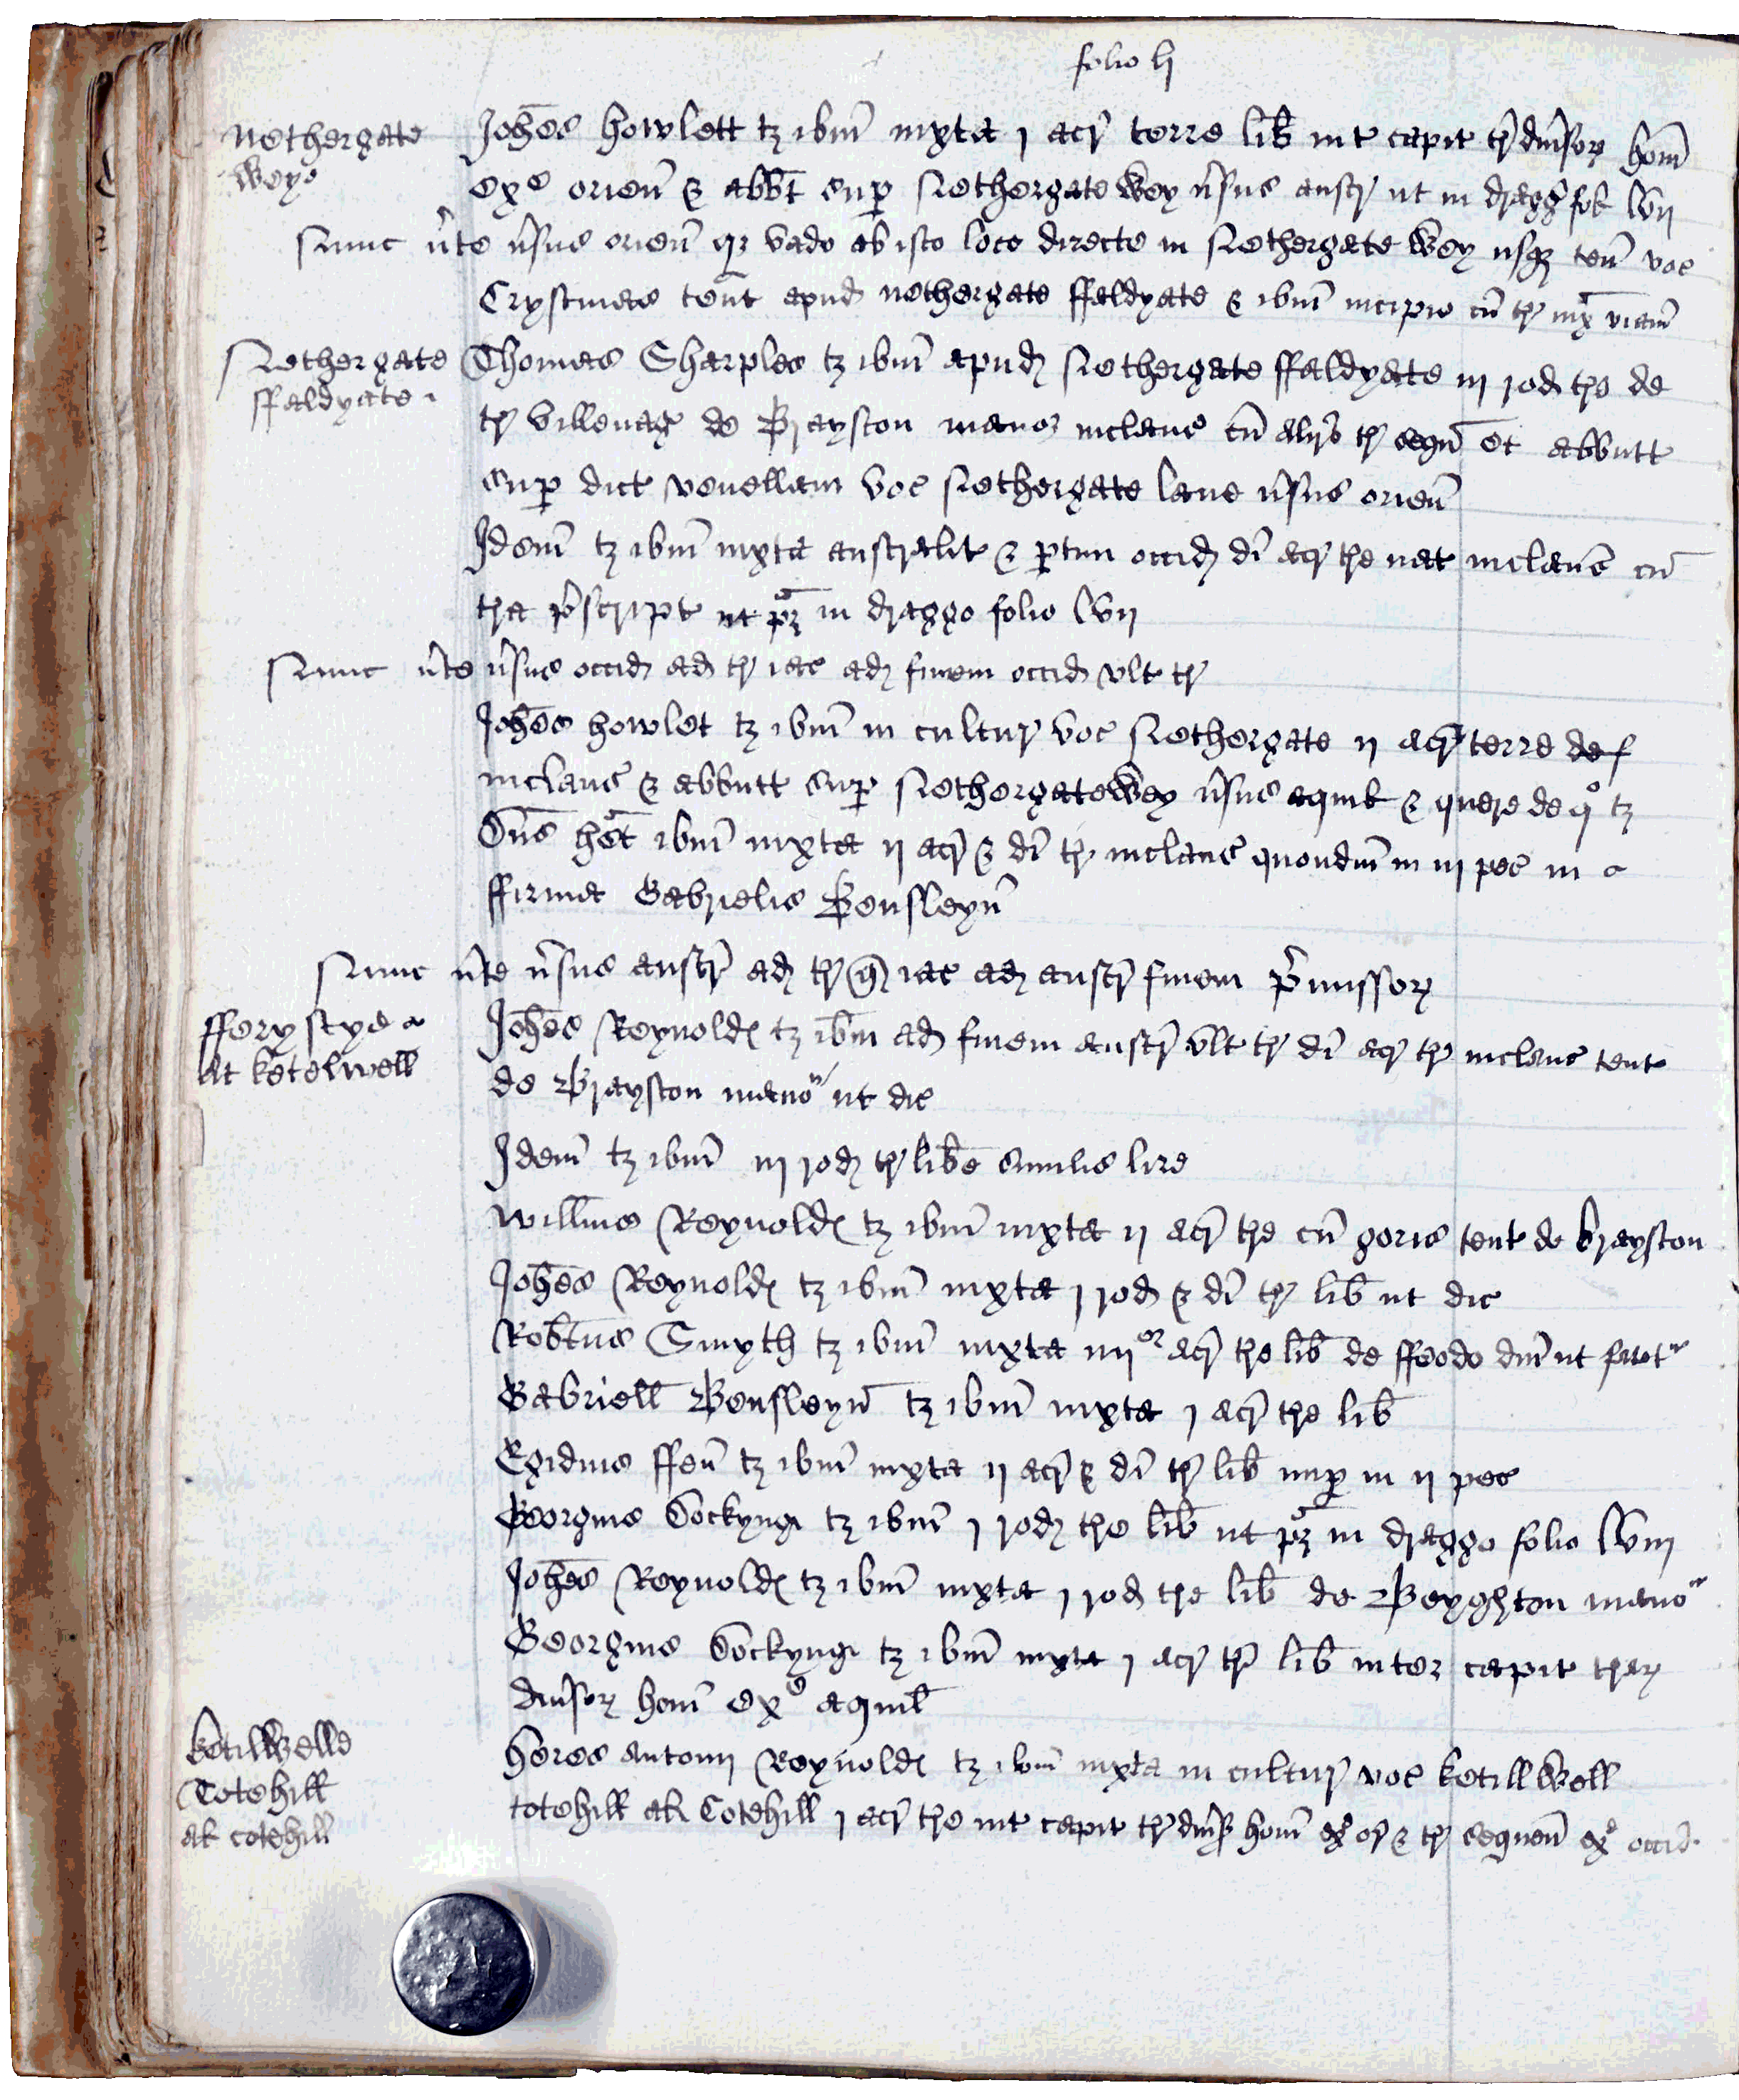 folio lj
Nethergate
weye
Joħes howlett tȝ ibm̄ iuxta j acr̄ terre lib̄ int capit tr̄ diu̾soꝝ hom̄
ex° orien̄ & abbt sup̱ Nethergate wey v̾sus austr̄ ut in dragg fol lvij
Nunc v̾te v̾sus orien̄ qȝ vado ab isto loco directe in Nethergate wey usqȝ ten̄ voc
Crystmas tent apud nethergate ffaldyate & ibm̄ incipio cū tr̄ iux viam̄
Nethergate
ffaldyate
Thomas Sharples tȝ ibm̄ apud Nethergate ffaldyate iij rod tr̄e de
tr̄ villenaḡ de Brayston maner inclaus cū alijs tr̄ sequ et abbutt
sup̱ dict venellam voc Nethergate lane v̾sus orien̄
Idem̄ tȝ ibm̄ iuxta australit & p̱tim occid di acr̄ tr̄e nat inclaus cū
tr̄a p̾script ut pȝ in draggo folio lvij
Nunc v̾te v̾sus occid ad tr̄ iac ad finem occid vlt tr̄
Joħes howlet tȝ ibm̄ in cultur̄ voc Nethergate ij acr̄ terre
inclaus & abbutt sup̱ Nethergatewey v̾sus aquil & quere de q° tȝ
Dn̄s het ibm̄ iuxta ij acr̄ & di tr̄ inclaus quondm̄ in iij pec in
ffirma Gabrielis Bensleyn̄
Nunc v̾te v̾sus austr̄ ad tr̄ q̄ iac ad austr̄ finem p̾missoꝝ
fferystye
At ketelwell
Joħes Reynold tȝ ibm̄ ad finem austr̄ vlt tr̄ di acr̄ tr̄ inclaus tent
de Brayston manoͬ ut dic
Idem̄ tȝ ibm̄ iij rod tr̄ libe similis lire
Willms Reynold tȝ ibm̄ iuxta ij acr̄ tr̄e cū goris tent de brayston
Joħes Reynold tȝ ibm̄ iuxta j rod & di tr̄ lib̄ ut dic
Robtus Smyth tȝ ibm̄ iuxta iiij°ʳ acr̄ tr̄e lib̄ de ffeodo dm̄ ut
Gabriell Bensleyn̄ tȝ ibm̄ iuxta j acr̄ tr̄e lib̄
Egidius ffen̄ tȝ ibm̄ iuxta ij acr̄ & di tr̄ lib̄ nup̱ in ij pec
Georgius Dockyng tȝ ibm̄ j rod tr̄e lib̄ ut pȝ in draggo folio lviij
Joħes Reynold tȝ ibm̄ iuxta j rod tr̄e lib̄ de Beyghton manoͬ
Georgius Dockyng tȝ ibm̄ iuxta j acr̄ tr̄ lib̄ inter capit tr̄aꝝ
diu̾soꝝ hom̄ ex° aquil
ketillwelle
Totehill
al cotehill
heres Antonij Reynold tȝ ibm̄ iuxta in cultur̄ voc ketillwell
totehill al Cotehill j acr̄ tr̄e int capit tr̄ diu̾s hom̄ ex° or̄ & tr̄ sequen̄ ex° occid